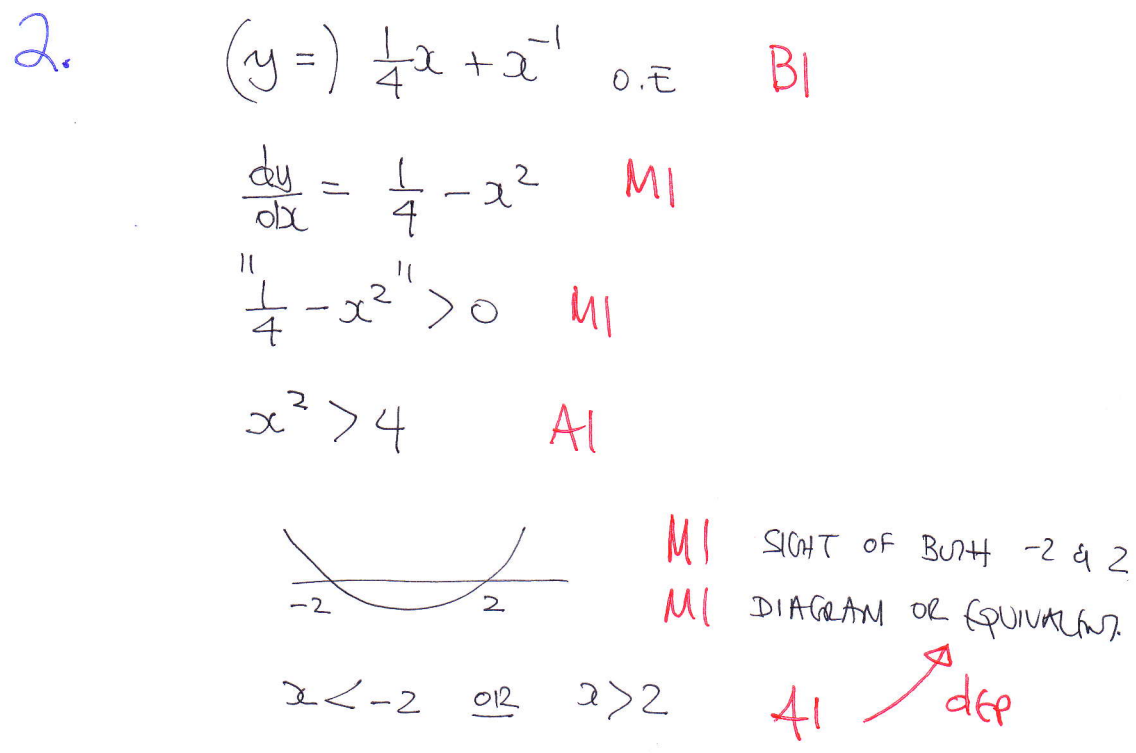 2. (y =) 1/4 x + x^-1 O.E B1
dy/dx = 1/4 - x^2 M1
"1/4 - x^2" > 0 M1
x^2 > 4 A1
M1 SIGHT OF BOTH -2 & 2
-2 2 M1 DIAGRAM OR EQUIVALENT.
x < -2 OR x > 2 A1 dEP